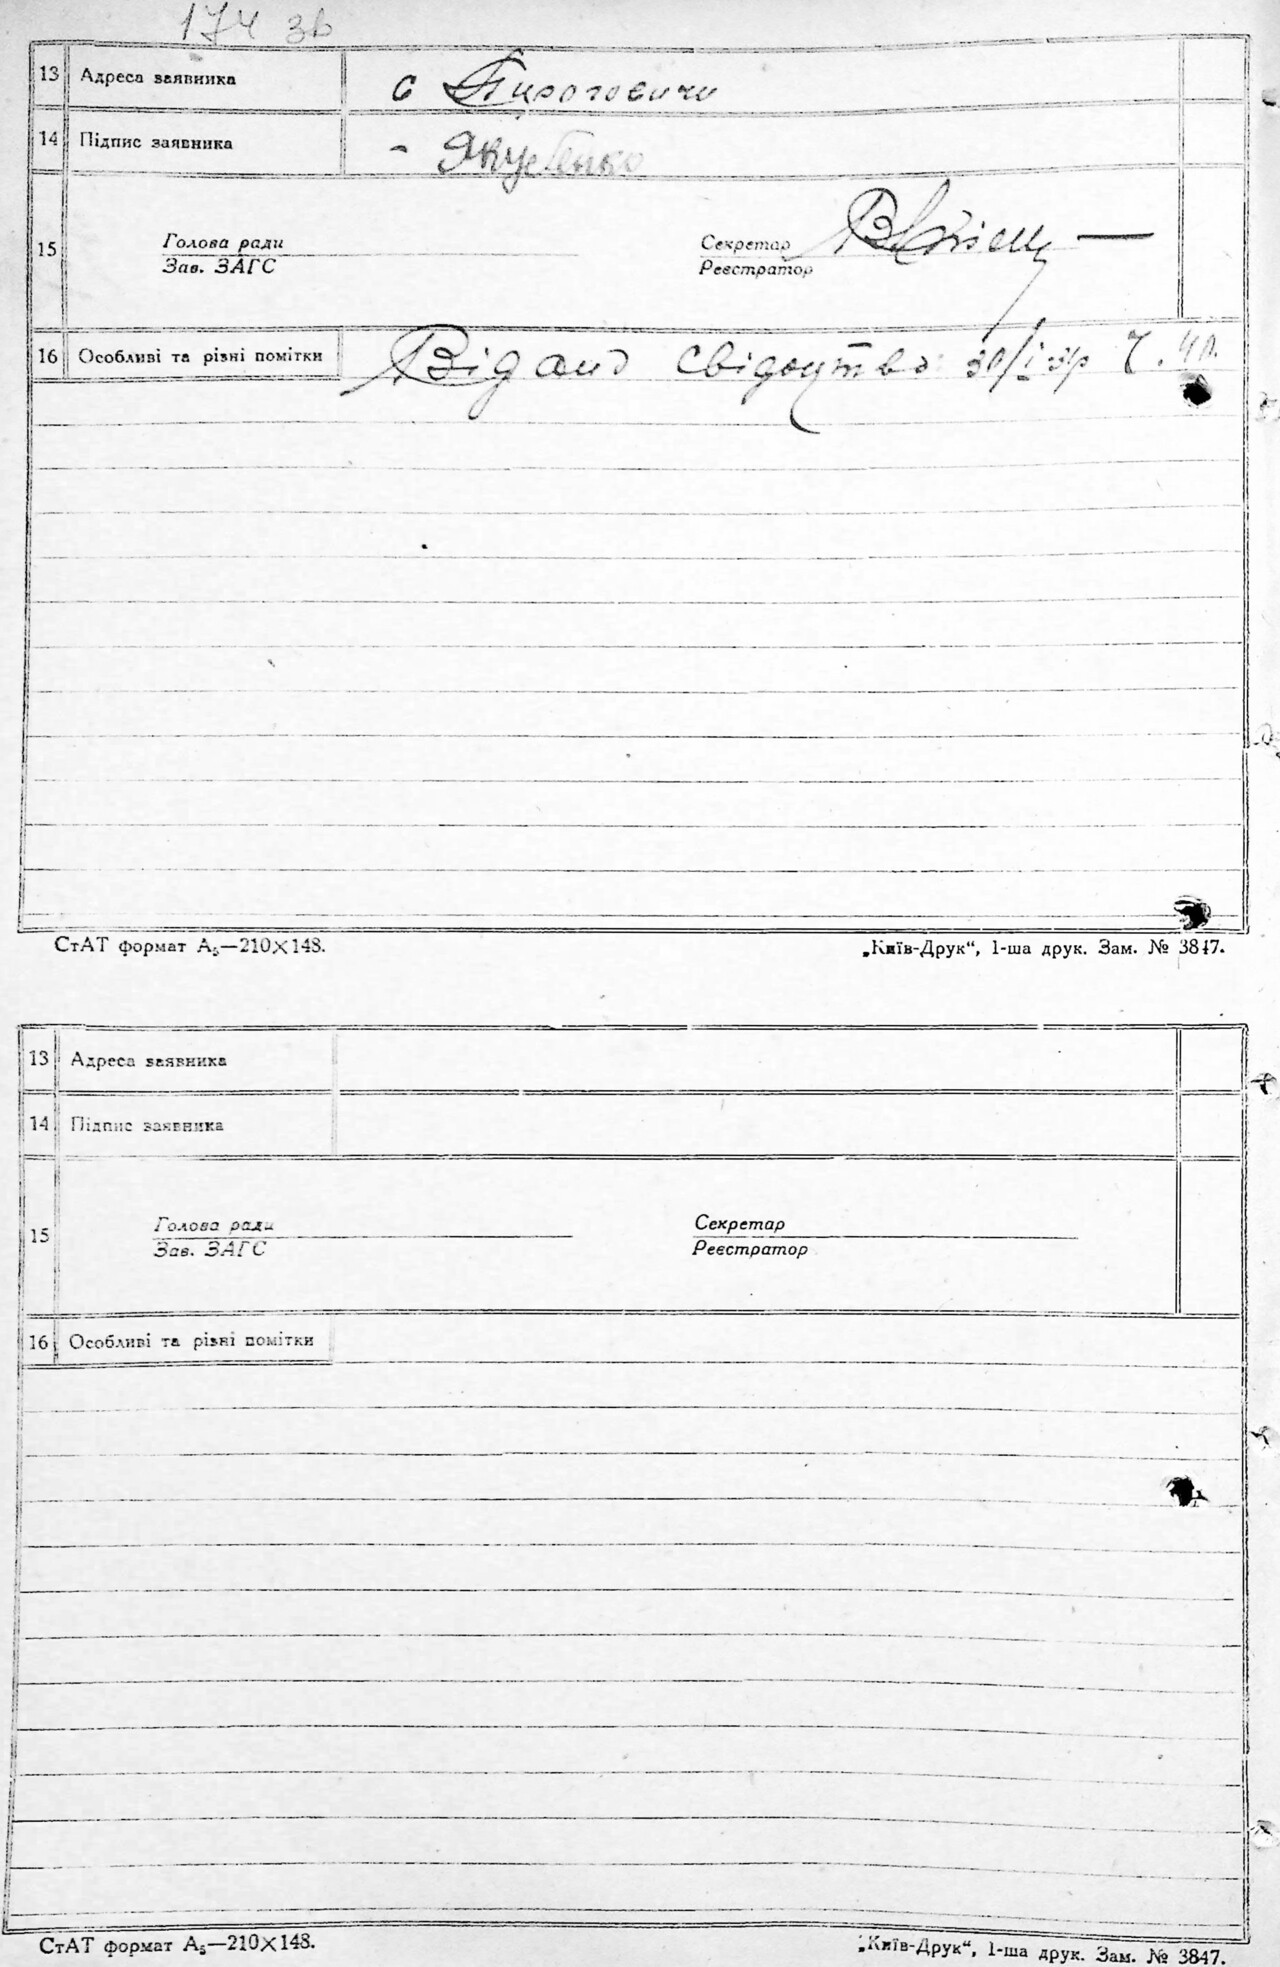 174 зв
13 Адреса заявника с Пироговичи
14 Підпис заявника - Якубенко
15 Голова ради Секретар
Зав. ЗАГС Реєстратор
16 Особливі та різні помітки Видано свідоцтво 30/I
СтАТ формат А₅—210×148. „Київ-Друк“, 1-ша друк. Зам. № 3847.
13 Адреса заявника
14 Підпис заявника
15 Голова ради Секретар
Зав. ЗАГС Реєстратор
16 Особливі та різні помітки
СтАТ формат А₅—210×148. „Київ-Друк“, 1-ша друк. Зам. № 3847.